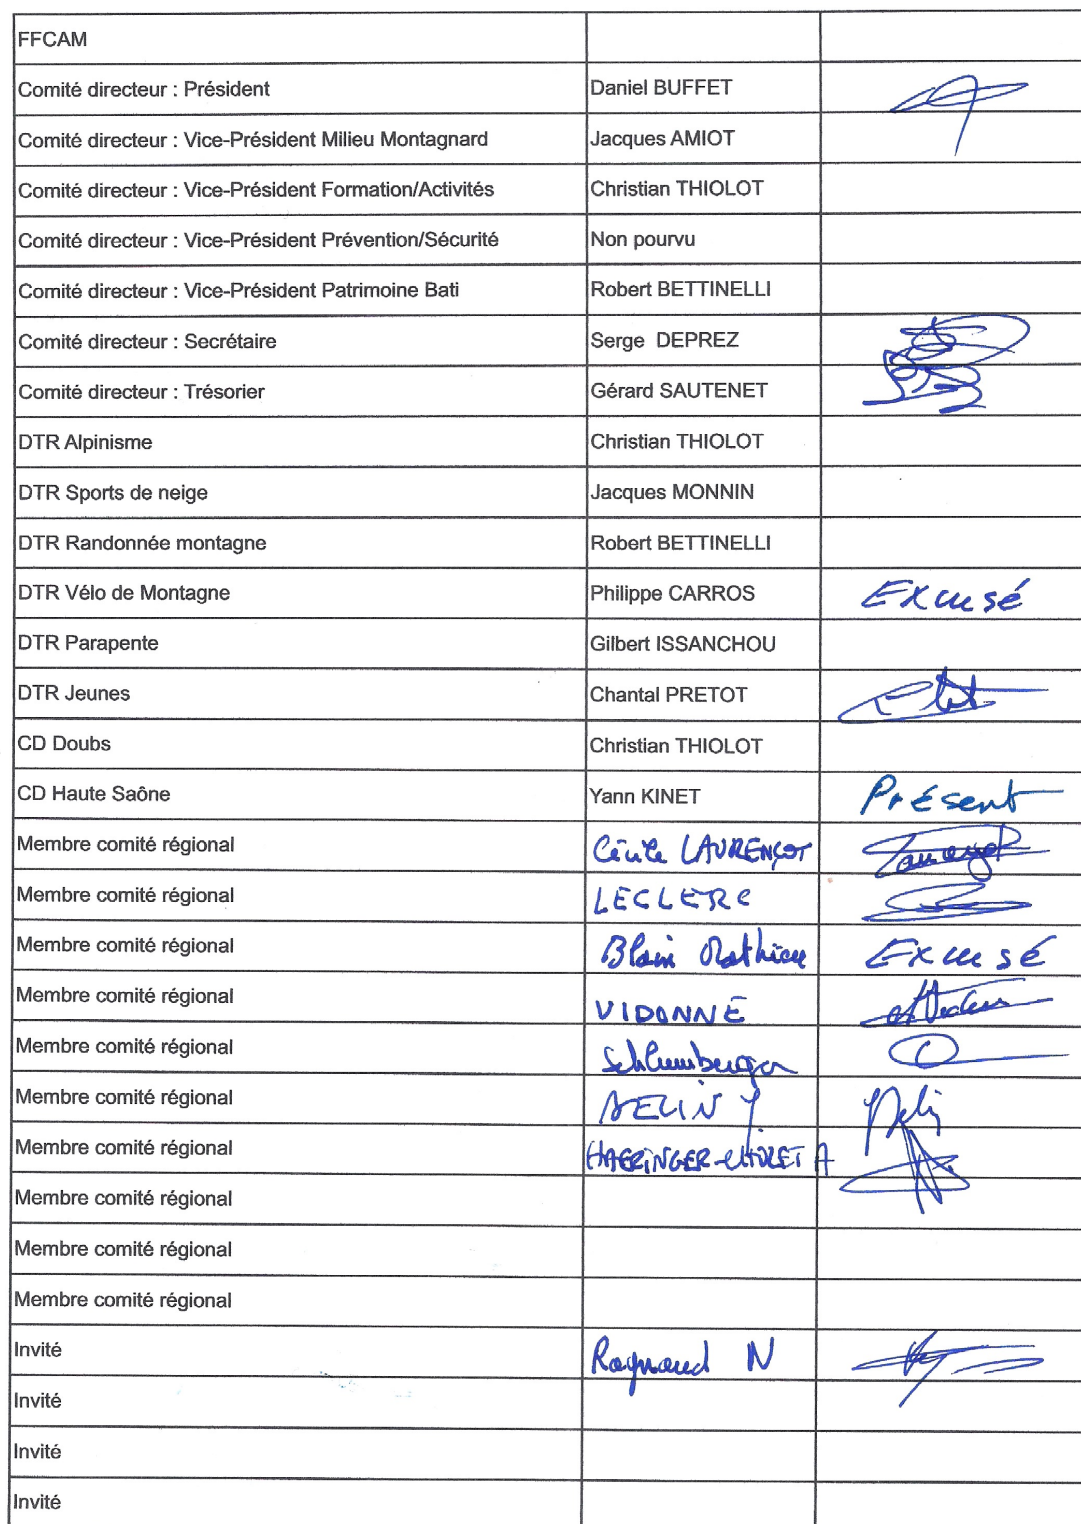 FFCAM
Comité directeur : Président Daniel BUFFET
Comité directeur : Vice-Président Milieu Montagnard Jacques AMIOT
Comité directeur : Vice-Président Formation/Activités Christian THIOLOT
Comité directeur : Vice-Président Prévention/Sécurité Non pourvu
Comité directeur : Vice-Président Patrimoine Bati Robert BETTINELLI
Comité directeur : Secrétaire Serge DEPREZ
Comité directeur : Trésorier Gérard SAUTENET
DTR Alpinisme Christian THIOLOT
DTR Sports de neige Jacques MONNIN
DTR Randonnée montagne Robert BETTINELLI
DTR Vélo de Montagne Philippe CARROS Excusé
DTR Parapente Gilbert ISSANCHOU
DTR Jeunes Chantal PRETOT
CD Doubs Christian THIOLOT
CD Haute Saône Yann KINET Présent
Membre comité régional Cécile LAURENÇOT
Membre comité régional LECLERC
Membre comité régional Blain Mathieu Excusé
Membre comité régional VIDONNE
Membre comité régional Schlumberger
Membre comité régional
Membre comité régional HAERINGER
Membre comité régional
Membre comité régional
Membre comité régional
Invité N
Invité
Invité
Invité